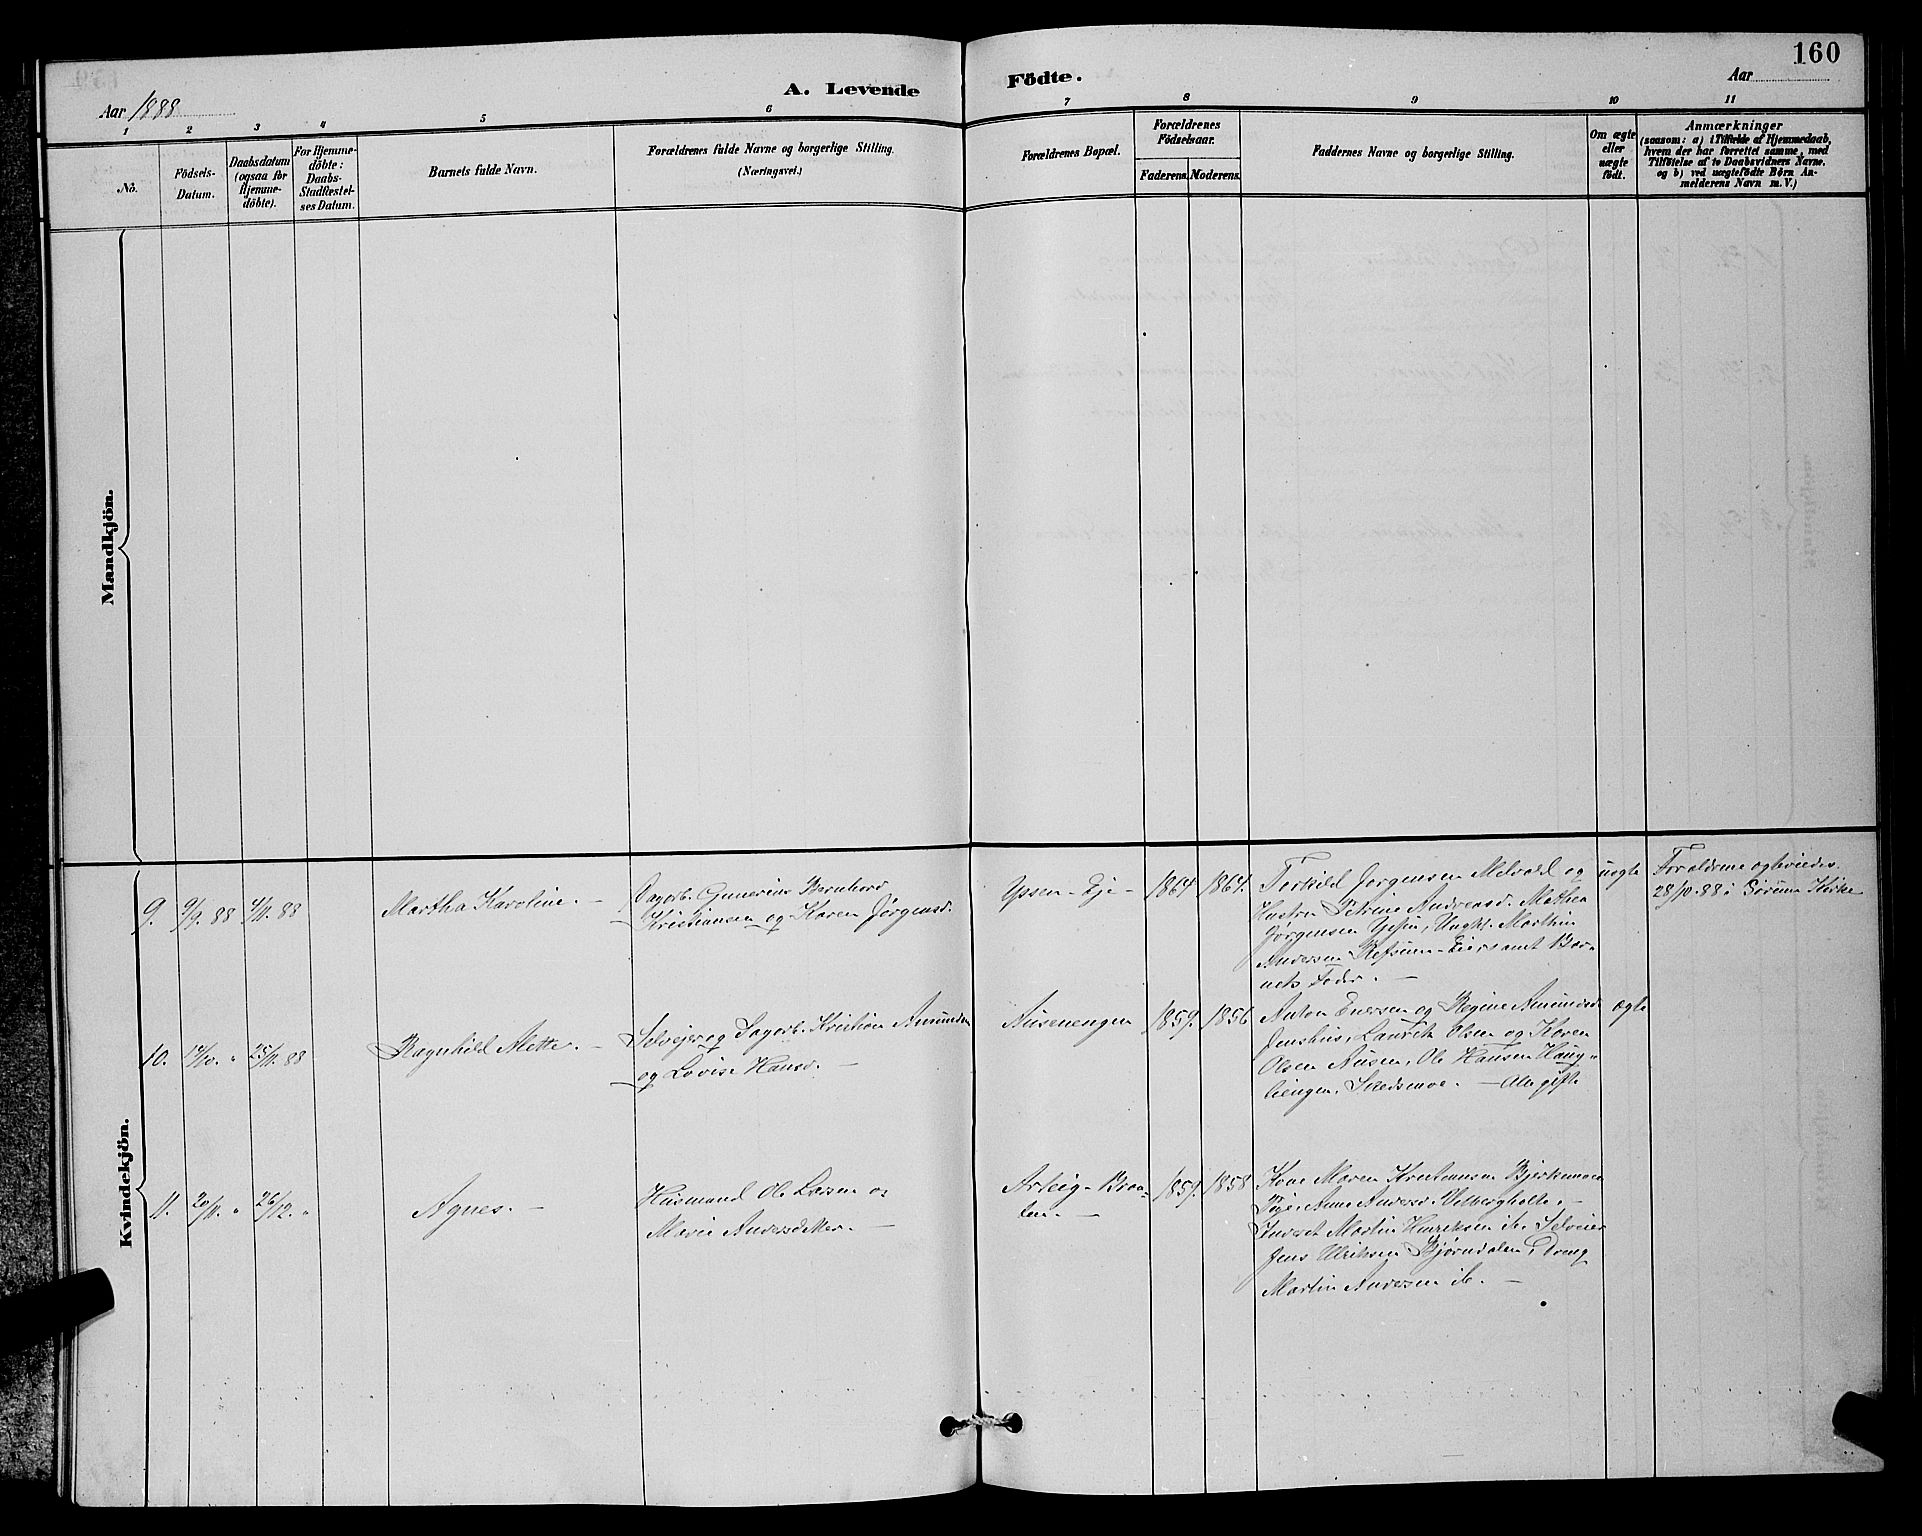 160
A. Levende Födte.
Aar 1888
Aar
1 2 3 4 5 6 7 8 9 10 11
No.
Födsels-
Datum.
Daabsdatum
(ogsaa for
Hjemme-
döbte).
For Hjemme-
döbte:
Daabs-
Stadfæstel-
ses Datum.
Barnets fulde Navn.
Forældrenes fulde Navne og borgerlige Stilling.
(Næringsvei.)
Forældrenes Bopæl.
Forældrenes
Födselsaar.
Faderens. Moderens.
Faddernes Navne og borgerlige Stilling.
Om ægte
eller
uægte
födt.
Anmærkninger
(saasom: a) i Tilfælde af Hjemmedaab,
hvem der har forrettet samme, med
Tilföielse af to Daabsvidners Navne,
og b) ved uægtefödte Börn An-
melderens Navn m.V.)
Mandkjön.
Kvindekjön.
9. 9/9 88 4/11 88
Martha Karoline. –
Dagarb. Gunerius Bernhard
Kristiansen og Karen Jørgensd.
Ypsen-Eje –
1864 1864.
Torkild Jørgensen Melvold og
Hustru Petrine Andreasd. Mathea
Jørgensen Ypsen, Ungk. Marthin
Andersen Refsum-Eier samt Bar-
nets Fader. –
uegte
Forældrene egteviedes
28/10.88 i Sørum Kirke
10. 14/10 " 25/11 88
Ragnhild Mette. –
Selvejer og Sagarb. Kristian Amundsen
og Lovise Hansd. –
Ausenengen
1859. 1856
Anton Enersen og Regine Amundsd.
Jenshus, Laurits Olsen og Karen
Olsen Ausen, Ole Hansen Haug-
liengen, Skedsmoe. – Alle gifte
egte
11. 20/11. " 26/12. "
Agnes. –
Husmand Ole Larsen og
Marie Andersd.
Arteig-Braa-
ten. –
1859. 1858
Kone Maren Kristiansen
Pige Anne Andersd.
Inderst Martin Henriksen ib. Selveier
Jens Ulriksen Bjørndalen, Dreng
Martin Andersen ib. –